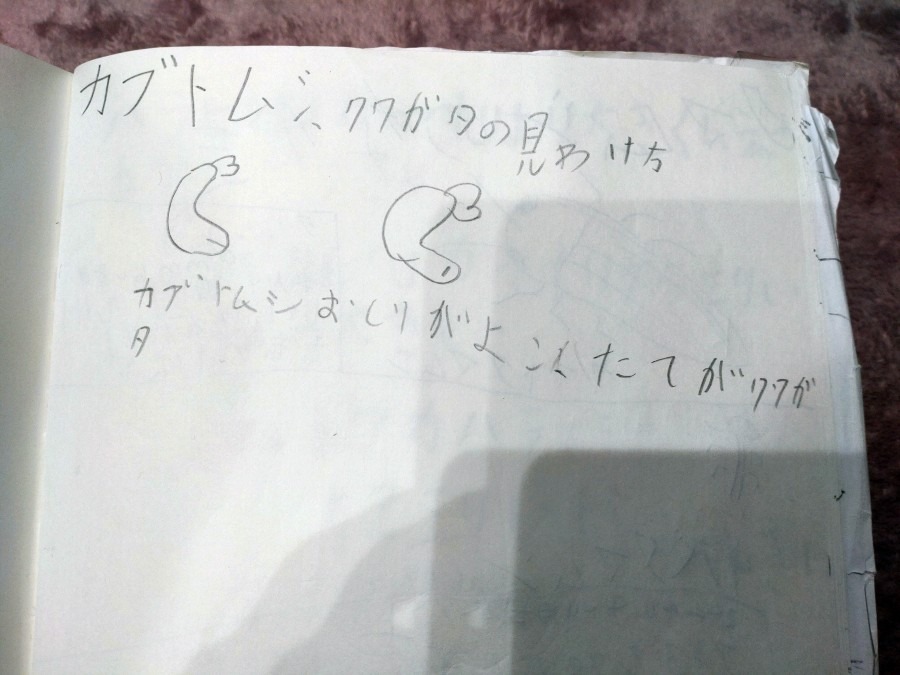 カブトムシ、クワガタの見わけ方
カブトムシおしりがよこ、たてがクワガ
タ